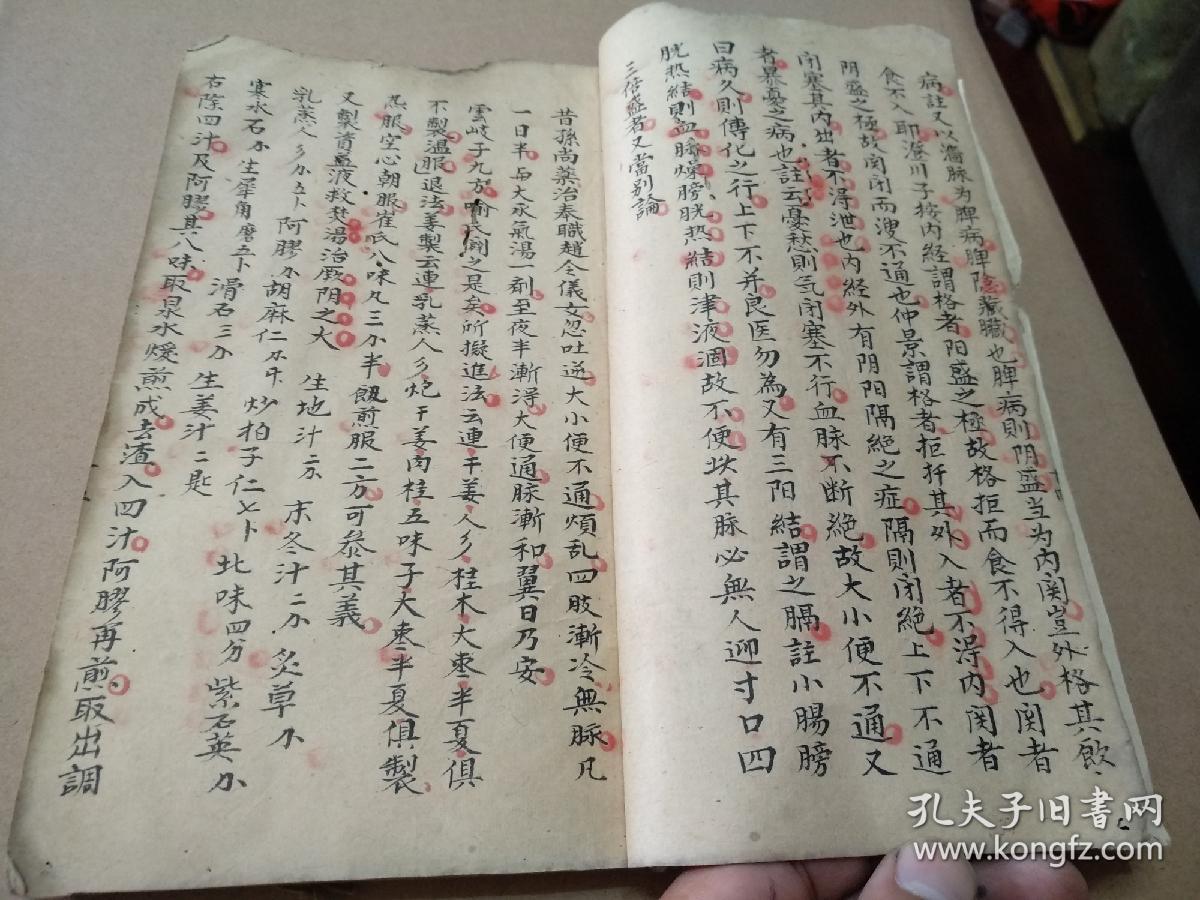 病註又以濇脉为脾病脾陰藏臟也脾病則阴盛当为内関豈外格其飲
食不入耶澄川子按内経謂格者阳盛之極故格拒而食不得入也関者
阴盛之極故関闭而溲不通也仲景謂格者拒扞其外入者不得内関者
闭塞其内出者不得泄也内経外有阴阳隔絶之症隔則闭絶上下不通
者暴憂之病也註云憂愁則気闭塞不行血脉不断絶故大小便不通又
曰病久則傳化之行上下不并良医勿為又有三阳結謂之膈註小腸膀
胱热結則血脉燥膀胱热結則津液涸故不便坎其脉必無人迎寸口四
三倍盛者又當别論
昔孫尚藥治奉職趙令儀女忽吐逆大小便不通煩乱四肢漸冷無脉凡
一日半与大承氣湯一剤至夜半漸淂大便通脉漸和翼日乃安
雲岐子九方喻氏闢之是矣所擬進法云連干姜人彡桂木大枣半夏俱
不製温服退法姜製云連乳蒸人彡炮干姜肉桂五味子大枣半夏俱製
热服空心朝服崔氏八味丸三小半煎服二方可参其義
又製資益液救焚湯治厥阴之火 生地汁二 末冬汁二 炙草
乳蒸人彡 阿膠 胡麻仁 炒柏子仁七卜 北味四分 紫石英
寒水石 生犀角磨五卜 滑石三 生姜汁二匙
右除四汁及阿膠其八味取泉水煖煎成去渣入四汁阿膠再煎取出調
孔夫子旧书网
www.kongfz.com